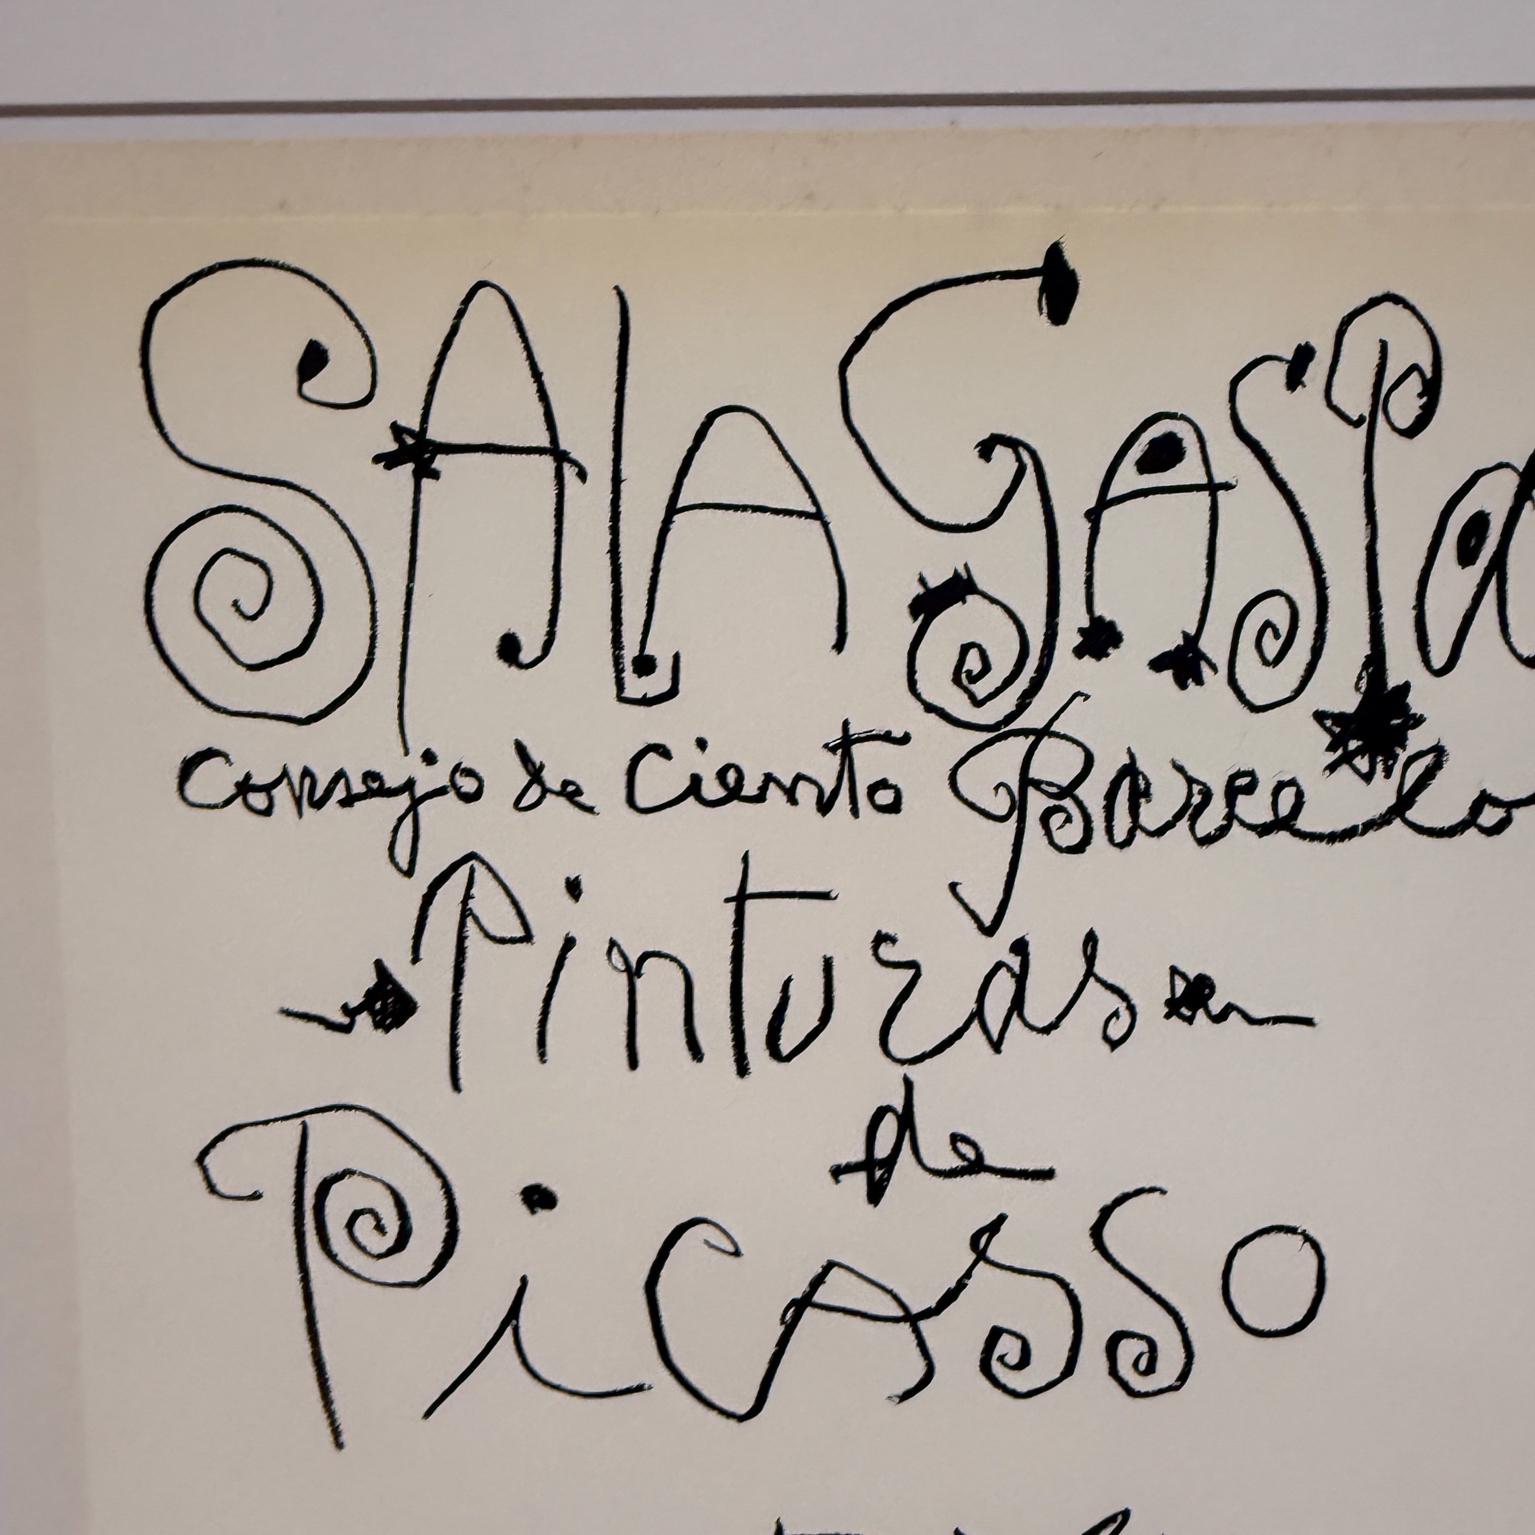 SAlA GASPa
Consejo de Ciento Barcelo
Pinturas
de
PicASSO